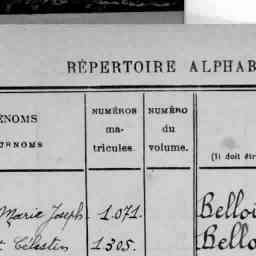 RÉPERTOIRE ALPHAB
ÉNOMS
URNOMS
NUMÉROS
ma-
tricules.
NUMÉRO
du
volume.
(Il doit êtr
Marie Joseph 1.071. Belloi
Célestin 1305. Bello